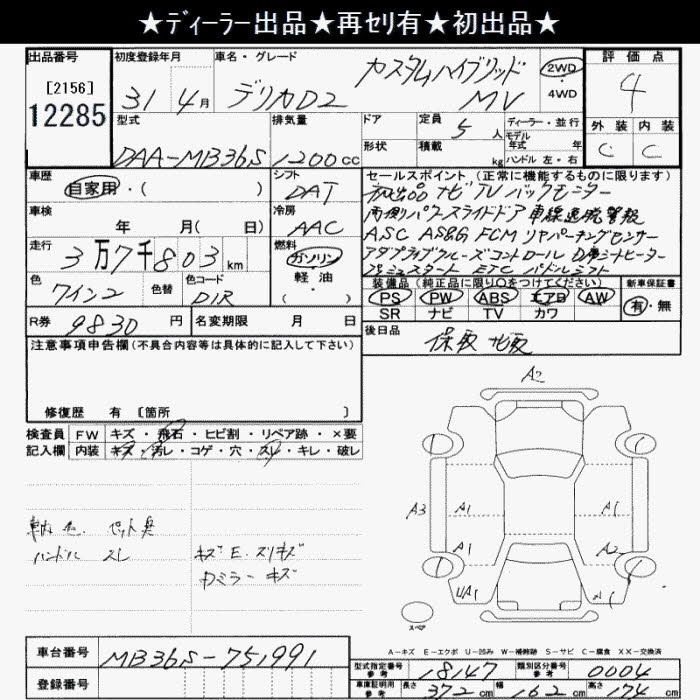 ★ディーラー出品★再セリ有★初出品★
出品番号
[2156]
12285
初度登録年月
31 4月
車名・グレード
デリカD2
カスタムハイブリッド
MV
2WD
・
4WD
評価点
4
外装 内装
C C
型式
DAA-MB36S
排気量
1200cc
ドア
形状
定員
5人
積載
kg
ディーラー・並行
モデル
年式 年
ハンドル 左・右
車歴
自家用・( )
シフト
DAT
セールスポイント (正常に機能するものに限ります)
初出品 ナビTV バックモニター
両側パワースライドドア 車線逸脱警報
ASC AS&G FCM リヤパーキングセンサー
アダプティブクルーズコントロール D席シートヒーター
プッシュスタート ETC パドルシフト
車検
年 月( 日)
冷房
AAC
走行
3万7千803km
燃料
ガソリン
軽・油
( )
色
ワイン2
色替
色コード
D1R
装備品(純正品に限り○をつけてください)
PS PW ABS エアB AW
SR ナビ TV カワ
新車保証書
有・無
R券
9830円
名変期限 月 日
後日品
保取 ナビ取
注意事項申告欄(不具合内容等は具体的に記入して下さい)
修復歴 有 [箇所 ]
検査員
記入欄
FW キズ・飛石・ヒビ割・リペア跡・×要
内装 キズ・汚レ・コゲ・穴・スレ・キレ・破レ
車内 ペット臭
ハンドル スレ
キズ E. スリキズ
ミラー キズ
A2
A3
A1
A1
A1
A2
UA1
スペア
A-キズ E-エクボ U-凹み W-補修跡 S-サビ C-腐食 XX-交換済
車台番号
MB36S-751991
登録番号
型式指定番号
参考
18147
類別区分番号
参考
0004
車庫証明用
参考
長さ 372cm 幅 162cm 高さ 174cm